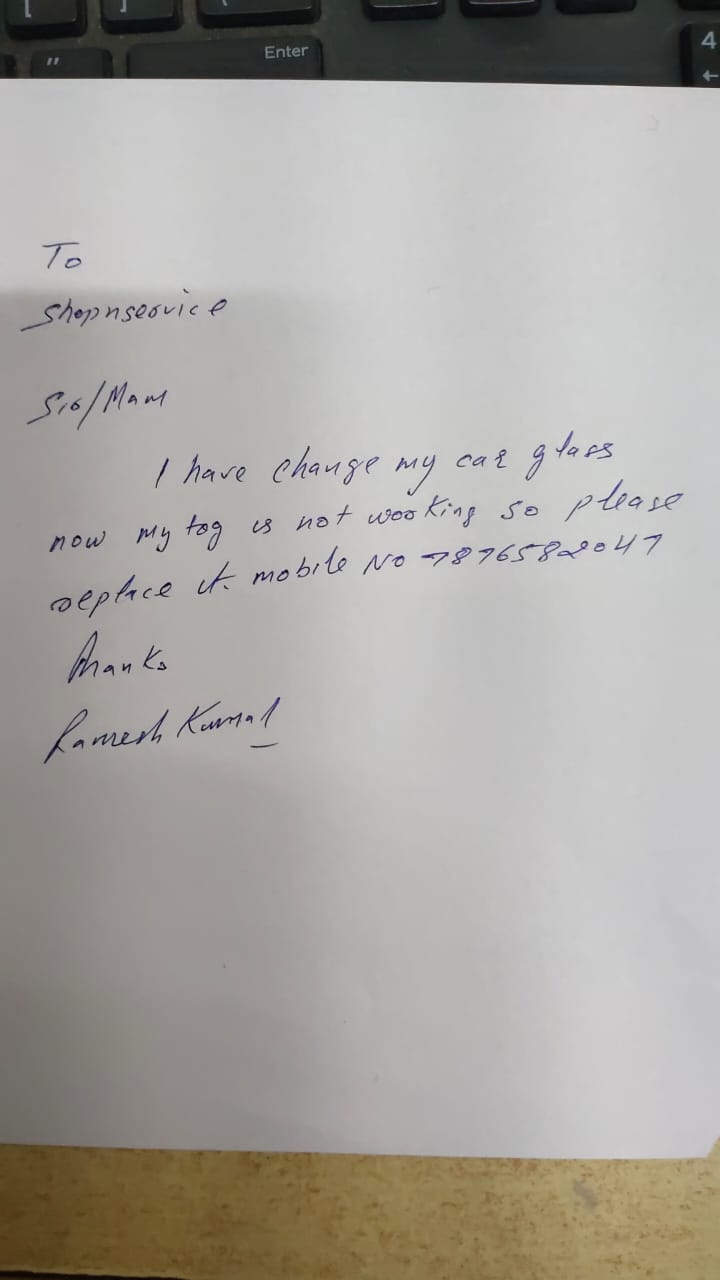 [
]
"
Enter
4
←
To
Shopnservice
Sir/Mam
I have change my car glass
now my tag is not working so please
replace it. mobile No 7876582047
Thanks
Ramesh Kumar